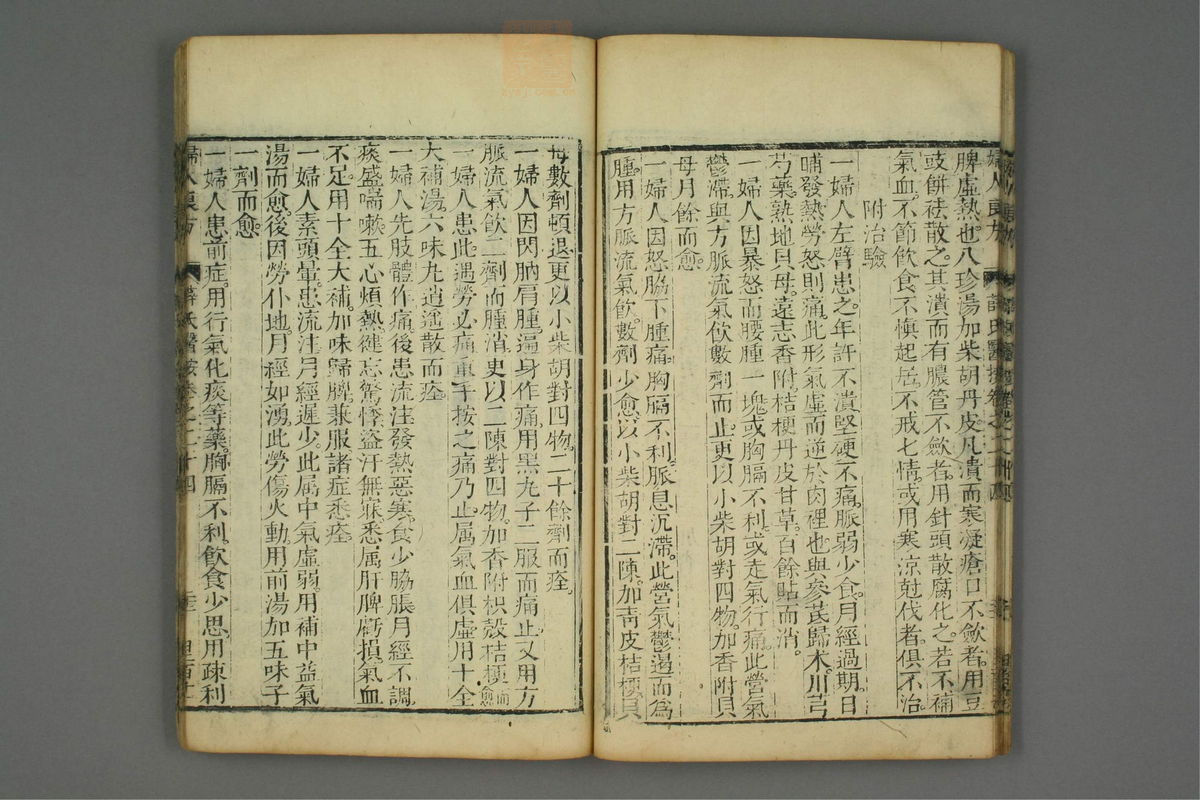 脾虛熱也八珍湯加柴胡丹皮凡潰而寒凝瘡口不斂者用豆
豉餅祛散之其潰而有膿管不歛者用針頭散腐化之若不補
氣血不節飲食不慎起居不戒七情或用寒涼尅伐者俱不治
附治驗
一婦人左臂患之年許不潰堅硬不痛脈弱少食月經過期日
晡發熱勞怒則痛此形氣虛而逆於肉裡也與參芪歸术川芎
芍藥熟地貝母遠志香附桔梗丹皮甘草百餘貼而消
一婦人因暴怒而腰腫一塊或胸膈不利或走氣行痛此營氣
鬱滯與方脈流氣飲數劑而止更以小柴胡對四物加香附貝
母月餘而愈
一婦人因怒脇下腫痛胸膈不利脈息沉滯此營氣鬱遏而為
腫用方脈流氣飲數劑少愈以小柴胡對二陳加靑皮桔梗貝
母數劑頓退更以小柴胡對四物二十餘劑而痊
一婦人因閃肭肩腫遍身作痛用黑丸子二服而痛止又用方
脈流氣飲二劑而腫消更以二陳對四物加香附枳殼桔梗而愈
一婦人患此遇勞必痛重手按之痛乃止属氣血俱虛用十全
大補湯六味丸逍遙散而痊
一婦人先肢體作痛後患流注發熱惡寒食少脇脹月經不調
痰盛喘嗽五心煩熱健忘驚悸盜汗無寐悉属肝脾虧損氣血
不足用十全大補加味歸脾兼服諸症悉痊
一婦人素頭暈患流注月經遲少此属中氣虛弱用補中益氣
湯而愈後因勞仆地月經如湧此勞傷火動用前湯加五味子
一劑而愈
一婦人患前症用行氣化痰等藥胸膈不利飲食少思用疎利
婦人良方 薛氏醫按卷之二十四